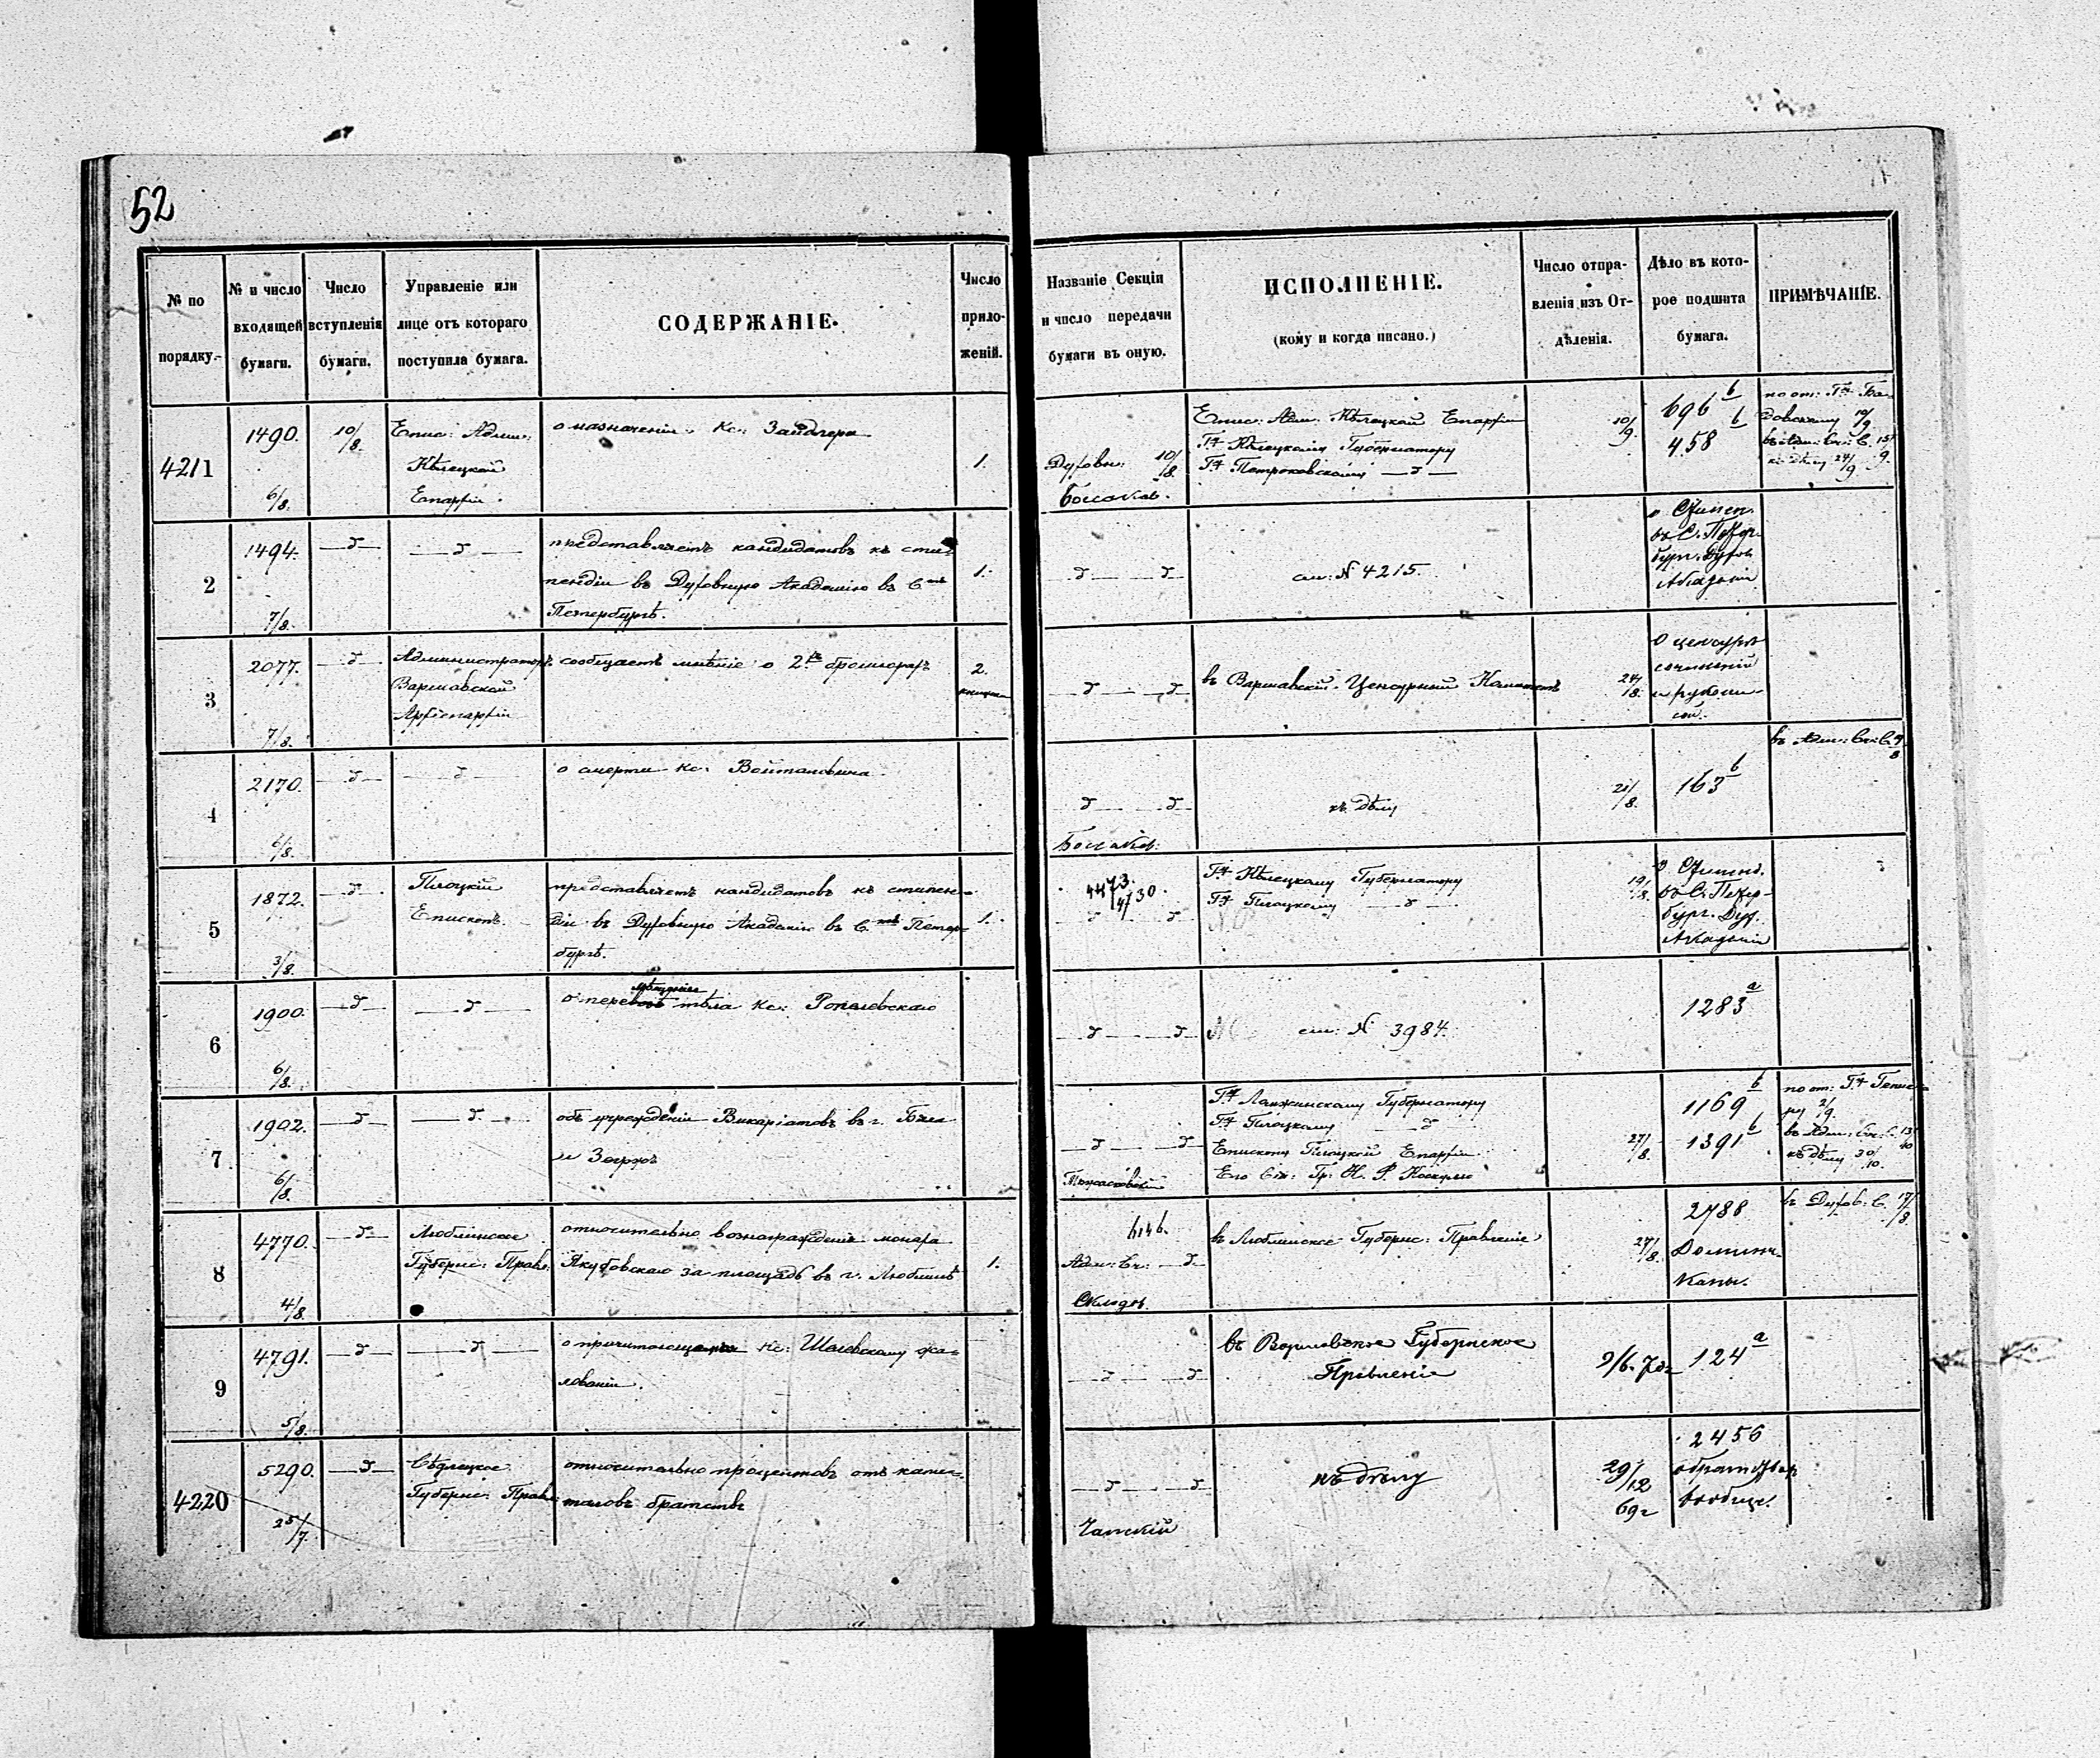 52
№ по порядку.
№ и число входящей бумаги.
Число вступленія бумаги.
Управленіе или лице отъ котораго поступила бумага.
СОДЕРЖАНІЕ.
Число приложеній.
Названіе Секціи и число передачи бумаги въ оную.
ИСПОЛНЕНІЕ.
(кому и когда писано.)
Число отправленія изъ Отдѣленія.
Дѣло въ которое подшита бумага.
ПРИМѢЧАНІЕ.
4211
1490.
6/8.
10/8.
Епис: Адми:
Кѣлецкой
Епархіи.
о назначеніи Кс: Зайдлера
1.
Духовн: 10/8.
Босаков.
Епис: Адм: Кѣлецкой Епархіи
Гну Кѣлецкому Губернатору
Гну Петроковскому —д—
10/9.
696 b
458 b
по от: Гну
10/9
24/9
2
1494.
7/8.
—д—
—д—
представляетъ кандидатовъ къ сти-
пендіи въ Духовную Академію въ Стъ
Петербургѣ.
1.
д — д
см: № 4215.
о Стипен.
въ С. Петер-
бург. Духов.
Академіи
3
2077.
7/8.
—д
Администраторъ
Варшавской
Архіепархіи
сообщаетъ мнѣніе о 2хъ брошюрахъ
2.
д — д
въ Варшавскій Цензурный Комитетъ
24/8.
О цензурѣ
сочиненій
и рукопи-
сей.
4
2170.
6/8.
—д—
—д
о смерти Кс: Войтановича
д — д
Босаков.
къ дѣлу
21/8.
163 b
въ Адм: Сч: С.
5
1872.
3/8.
—д
Плоцкій
Епископъ.
представляетъ кандидатовъ къ стипен-
діи въ Духовную Академію въ Стъ Петер-
бургѣ.
1.
4473.
д — д
Гну Кѣлецкому Губернатору
Гну Плоцкому —д—
19/8.
о Стипенд.
въ С. Петер-
бург. Дух.
Академіи
6
1900.
6/8.
—д—
—д—
о перевозѣ тѣла Кс:
д — д
см: № 3984.
1283 a
7
1902.
6/8.
—д—
—д—
объ учрежденіи Викаріатовъ въ г.
и Згержъ
д — д
Гну Ломжинскому Губернатору
Гну Плоцкому —д
Епископу Плоцкой Епархіи
Его Сія: Гр: Н. Ф. Коскулю
27/8.
1169 b
1391 b
по от: Гну
2/9.
въ Адм: Сч: С. 13/10
къ дѣлу 30/10.
8
4770.
4/8.
—д—
Люблинское
Губернс: Правл:
относительно вознагражденія монаха
Якубовскаго за площадь въ г. Люблинѣ
1.
6146.
Адм: Сч: —д—
въ Люблинское Губернс: Правленіе
27/8.
2788
Домини-
каны.
въ Духов: С. 17/8
9
4791.
5/8.
—д—
—д—
о причитающемся Кс: Шолевскому жа-
лованіи.
—д — д
въ Варшавское Губернское
Правленіе
9/6. 70г
124 a
4220
5290.
25/7.
—д—
Сѣдлецкое
Губернс: Правл:
относительно процентовъ отъ капи-
таловъ братствъ
—д — д
Чапскій
къ дѣлу
29/12
69г
2456
о братствах
вообще.